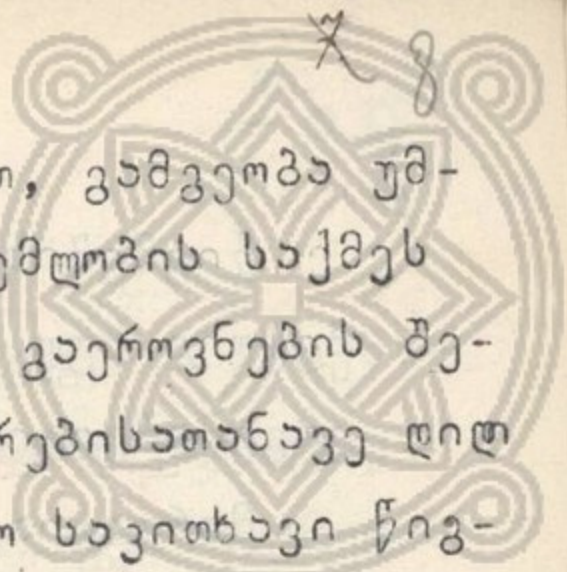 8
ი, გამგეობა უმ-
ემლობის საქმეს
გაეროვნების შე-
რებისათანავე დიდ
ო საკითხავი წიგ-